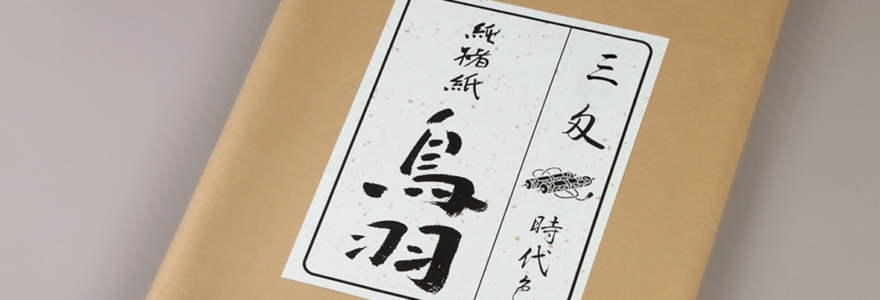 三匁
時代色
純楮紙
鳥羽